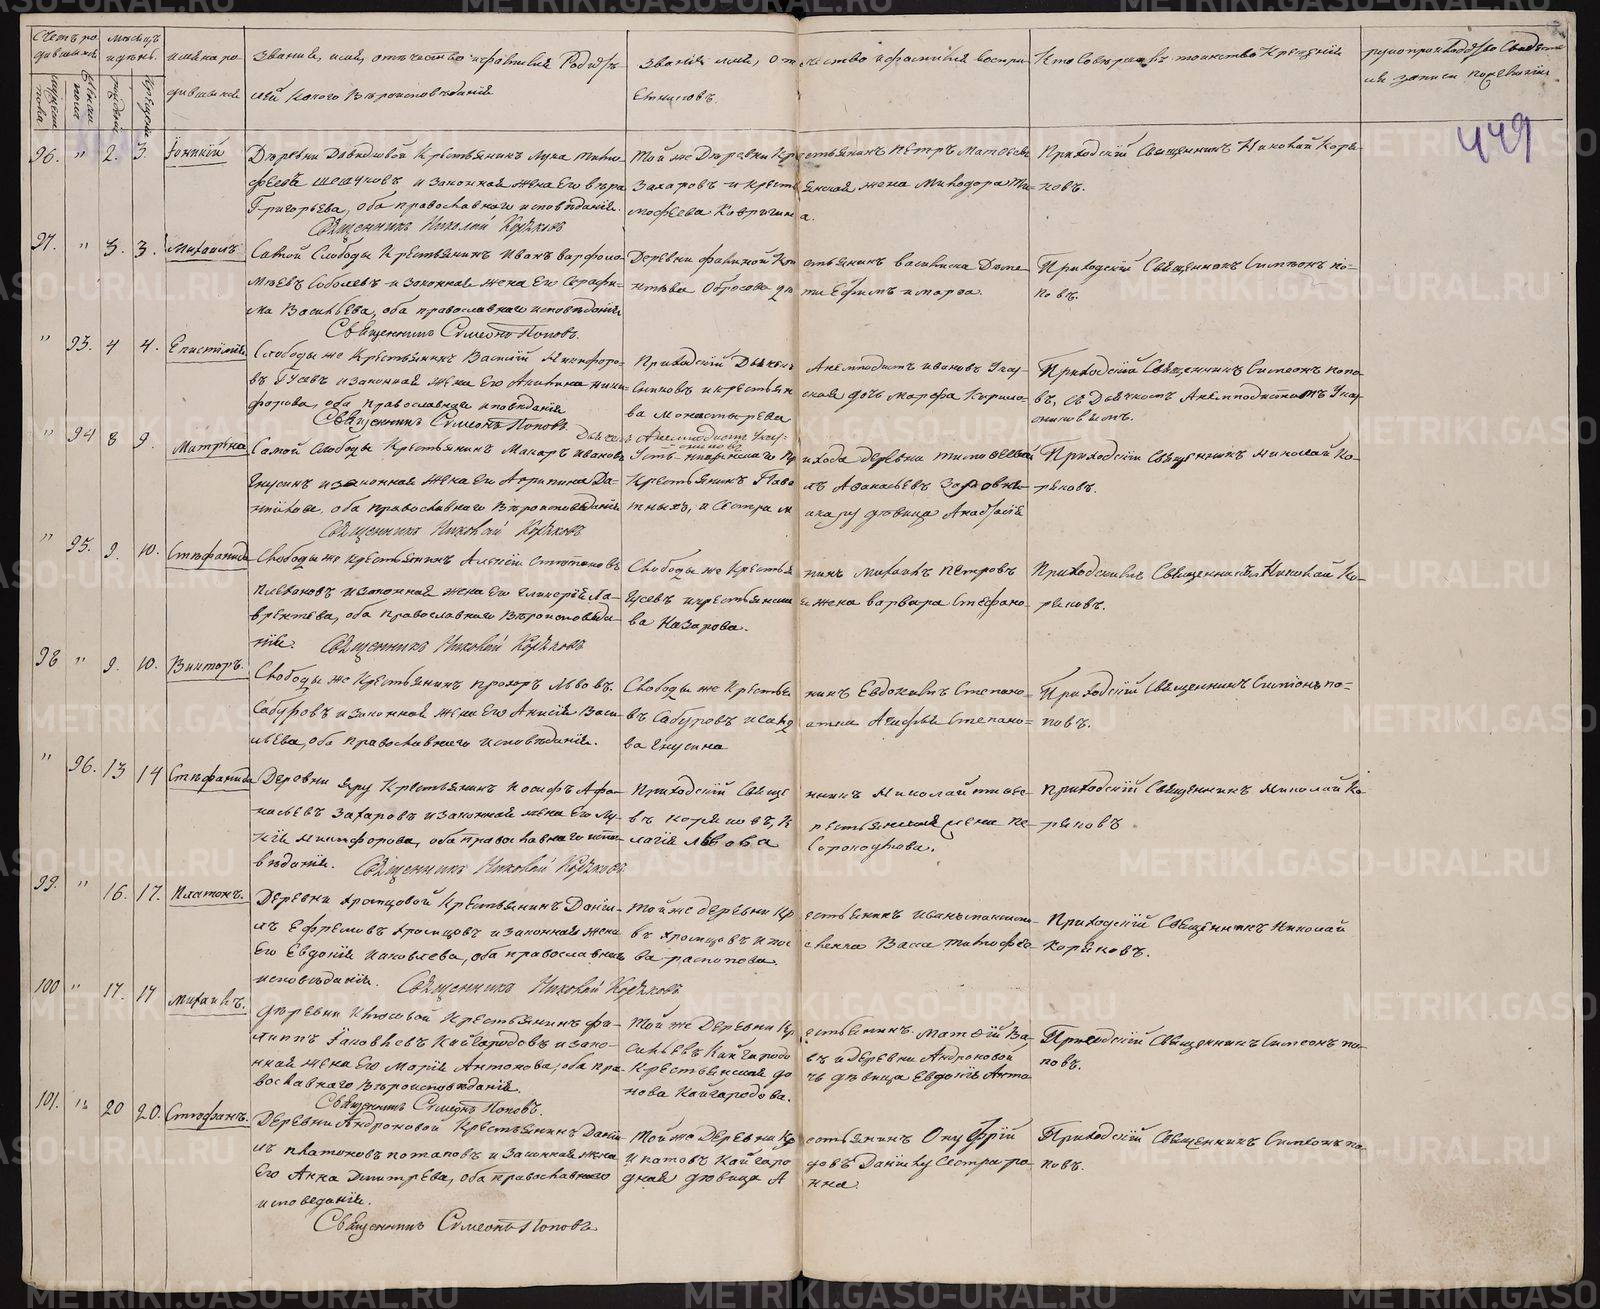 Счетъ ро-
дившихся
мужеска
пола
женска
пола
Мѣсяцъ
и день
рожденія
крещенія
имяна ро-
дившихся
Званіе, имя, отчество и фамилія Родите-
лей какого Вѣроисповѣданія
Званіе имя, отчество и фамилія воспрі-
емниковъ.
Кто совершалъ таинство Крещенія
рукоприкладство свидѣтелей
записи по желанію
449
96. " 2. 3. Іоникій
Деревни Давыдовой Крестьянинъ Лука Тимо-
феевъ и законная жена Его Вѣра
Григорьева, оба православнаго исповѣданія.
Священникъ Николай Коряковъ
Той же Деревни Крестьянинъ Петръ Матѳеевъ
Захаровъ и крестьянская жена Минодора Ти-
мофеева Ковригина.
Приходскій Священникъ Николай Коря-
ковъ.
97. " 3. 3. Михаилъ
Самой Слободы Крестьянинъ Иванъ Варфоло-
мѣевъ Соболевъ и законная жена Его Серафи-
ма Васильева, оба православнаго исповѣданія
Священникъ Симеонъ Поповъ.
Деревни
дѣти Ефимъ и Марѳа.
Приходскій Священникъ Симеонъ По-
повъ.
" 93. 4 4. Епистимія
Слободы же Крестьянинъ Василій Никифоро-
въ Гусевъ и законная жена Его Акилина Ники-
форова, оба православнаго исповѣданія
Священникъ Симеонъ Поповъ
Приходскій Дьячекъ Анемподистъ Ивановъ
и крестьянская дочь Марѳа Кирило-
ва Монастырева
Приходскій Священникъ Симеонъ Попо-
въ, съ Дьячкомъ Анемподистомъ
" 94 8 9. Матрена
Самой Слободы Крестьянинъ Макаръ Ивановъ
Ягусинъ и законная жена Его Агрипина Да-
ніилова, оба православнаго Вѣроисповѣданія
Священникъ Николай Коряковъ
прихода деревни Тимоѳеевой
Крестьянинъ Павелъ Аѳанасьевъ
и сестра
дѣвица Анастасія
Приходскій Священникъ Николай Ко-
ряковъ.
" 95. 9. 10. Стефанида
Слободы же крестьянинъ Алексій
Плехановъ и законная жена его Гликерія Ла-
врентьева, оба православнаго Вѣроисповѣда-
нія. Священникъ Николай Коряковъ
Слободы же Крестьянинъ Михаилъ Петровъ
Гусевъ и крестьянская жена Варвара Стефано-
ва Назарова.
Приходскій Священникъ Николай Ко-
ряковъ.
98 " 9. 10. Викторъ.
Слободы же Крестьянинъ Прохоръ Львовъ
Сабуровъ и законная жена Его Анисія Васи-
льева, оба православнаго исповѣданія.
Слободы же Крестьянинъ Евдокимъ Степано-
въ Сабуровъ и Агафья Степано-
ва Ягусина
Приходскій Священникъ Симеонъ По-
повъ.
" 96. 13 14 Стефанида
Деревни Яру Крестьянинъ Іосифъ Афа-
насьевъ Захаровъ и законная жена Его Лу-
кія Никифорова, оба православнаго испо-
вѣданія. Священникъ Николай Коряковъ
Приходскій Священникъ Николай Тимоѳе-
въ Коряковъ, крестьянская жена Пе-
лагія Львова Сорокоумова.
Приходскій Священникъ Николай Ко-
ряковъ
99. " 16. 17. Платонъ.
Деревни Хромцовой Крестьянинъ Даніи-
лъ Ефремовъ Хромцовъ и законная жена
Его Евдокія Иаковлева, оба православнаго
исповѣданія. Священникъ Николай Коряковъ
Той же деревни Крестьянинъ Иванъ
въ Хромцовъ и Васса Тимофѣе-
ва Распопова.
Приходскій Священникъ Николай
Коряковъ.
100 " 17. 17 Михаилъ.
Деревни Клюсовой Крестьянинъ Фи-
липпъ Іаковлевъ Кайгародовъ и зако-
нная жена Его Марія Антонова, оба пра-
вославнаго Вѣроисповѣданія.
Священникъ Симеонъ Поповъ.
Той же Деревни Крестьянинъ Матѳій Ва-
сильевъ Кайгородовъ и Деревни Андроновой
Крестьянская дочь дѣвица Евдокія Анто-
нова Кайгародова.
Приходскій Священникъ Симеонъ По-
повъ.
101. " 20 20. Стефанъ.
Деревни Андроновой Крестьянинъ Дании-
лъ Платоновъ Потаповъ и законная жена
Его Анна Дмитрева, оба православнаго
исповеданія.
Священникъ Симеонъ Поповъ
Той же Деревни Крестьянинъ Онуфрій
Ипатовъ Кайгародовъ Данилу сестра ро-
дная дѣвица Анна.
Приходскій Священникъ Симеонъ По-
повъ.